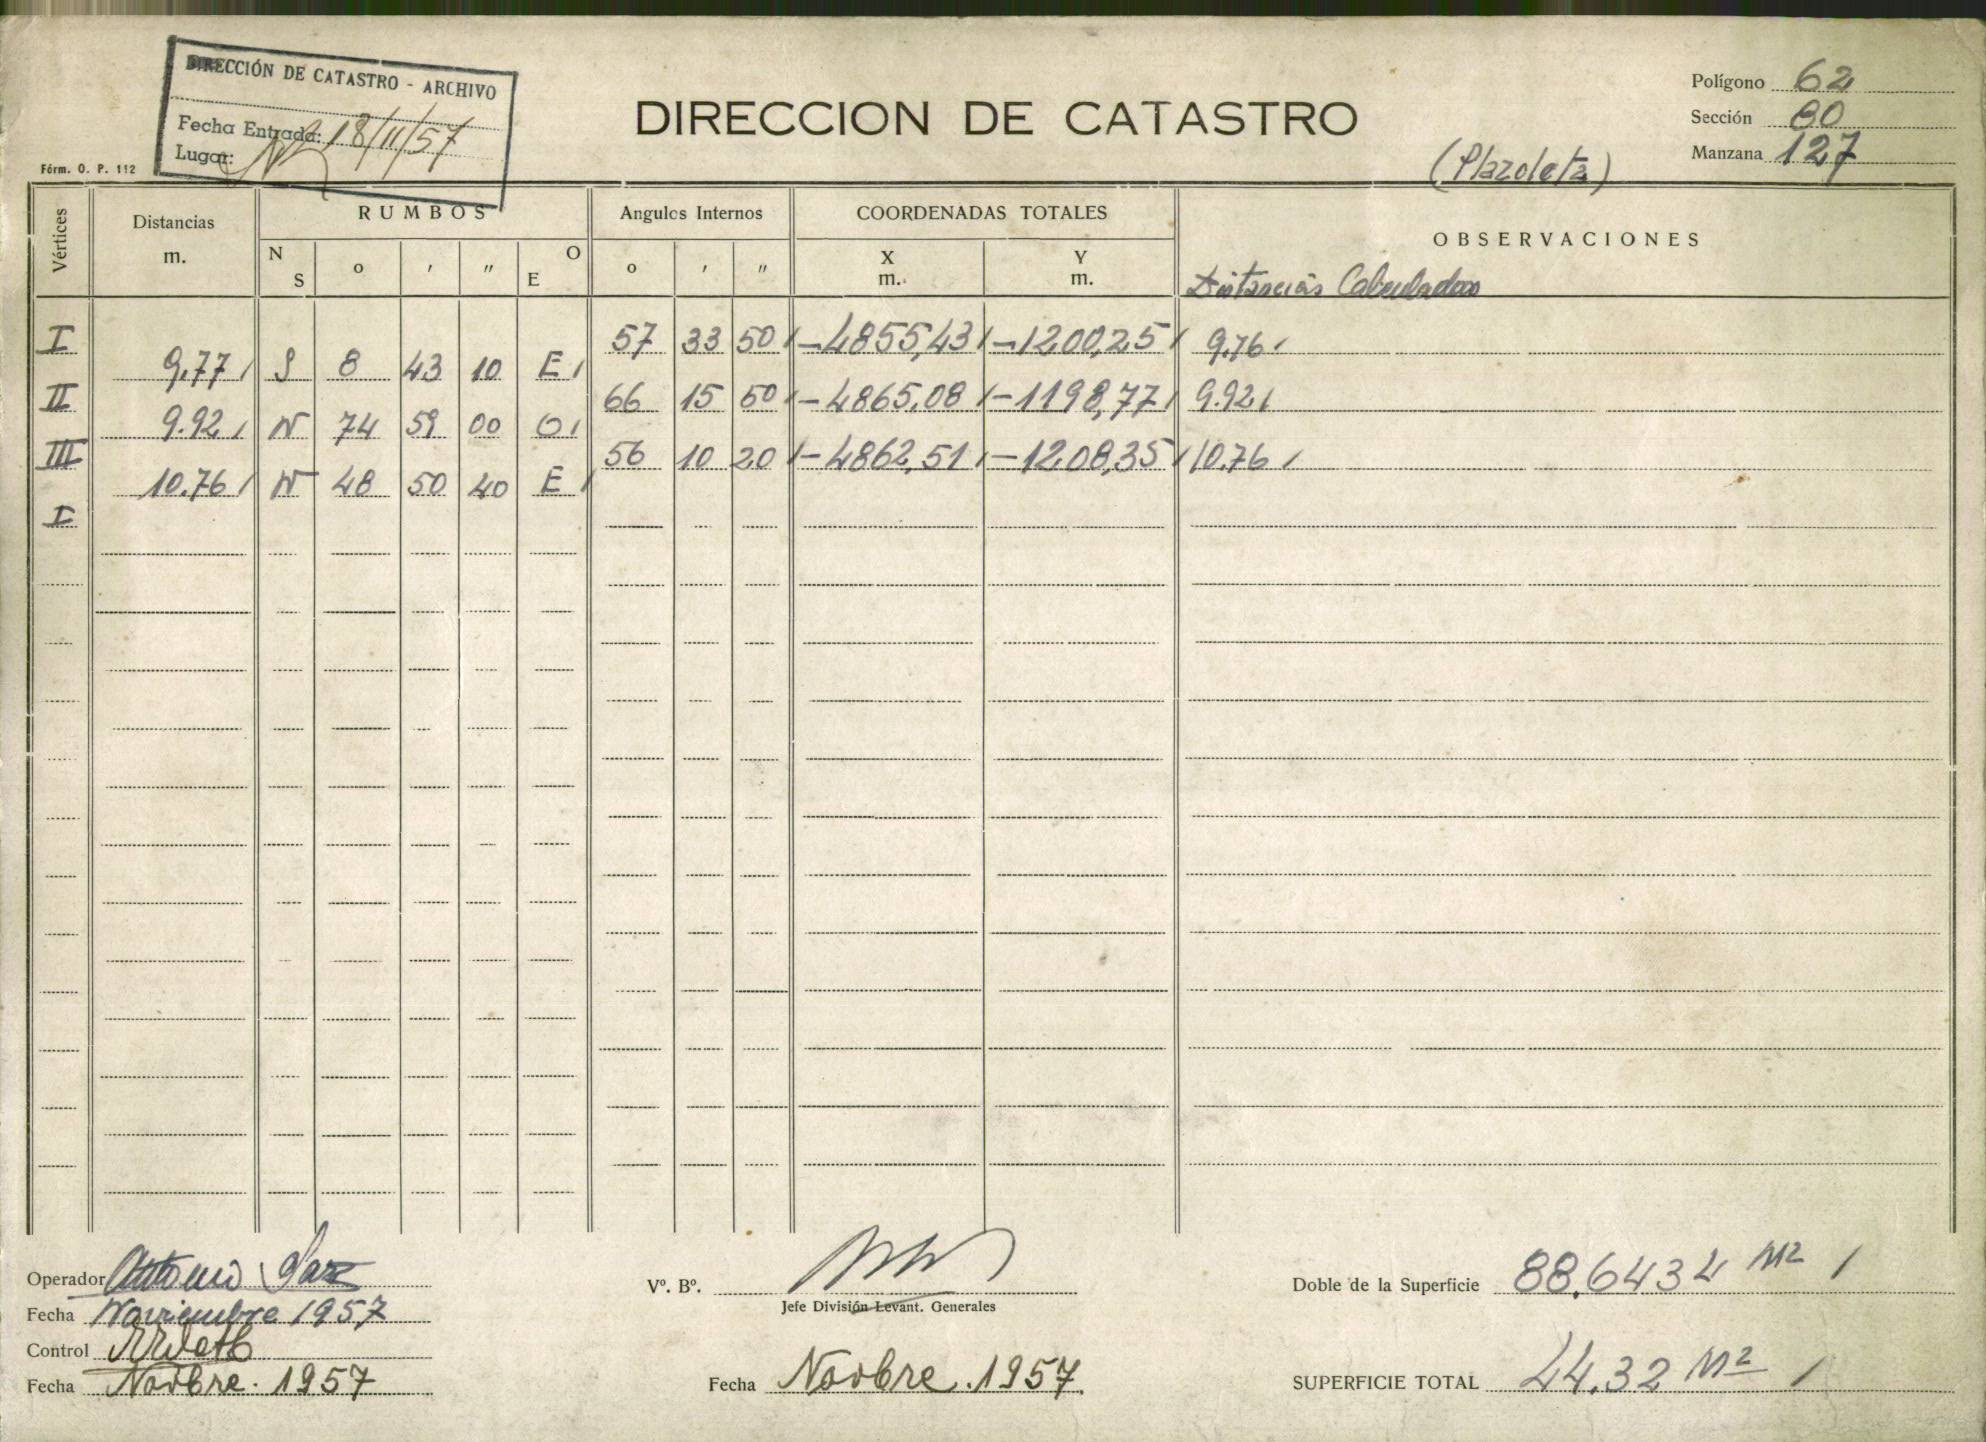 DIRECCIÓN DE CATASTRO - ARCHIVO
Fecha Entrada: 18/11/57
Lugar:
Fórm. O. P. 112
DIRECCION DE CATASTRO
(Plazoleta)
Polígono 62
Sección 80
Manzana 127
Vértices Distancias m. RUMBOS N S ° ' " O E Angulos Internos ° ' " COORDENADAS TOTALES X m. Y m. OBSERVACIONES
Distancias Calculadas
I 57 33 50 -4855,43 -1200,25 9.76
9.77 S 8 43 10 E
II 66 15 50 -4865,08 -1198,77 9.92
9.92 N 74 59 00 O
III 56 10 20 -4862,51 -1208,35 10.76
10.76 N 48 50 40 E
I
Operador Antonio
Fecha Noviembre 1957
Control
Fecha Novbre. 1957
Vº. Bº.
Jefe División Levant. Generales
Fecha Novbre. 1957
Doble de la Superficie 88.6434 M2
SUPERFICIE TOTAL 44.32 M2